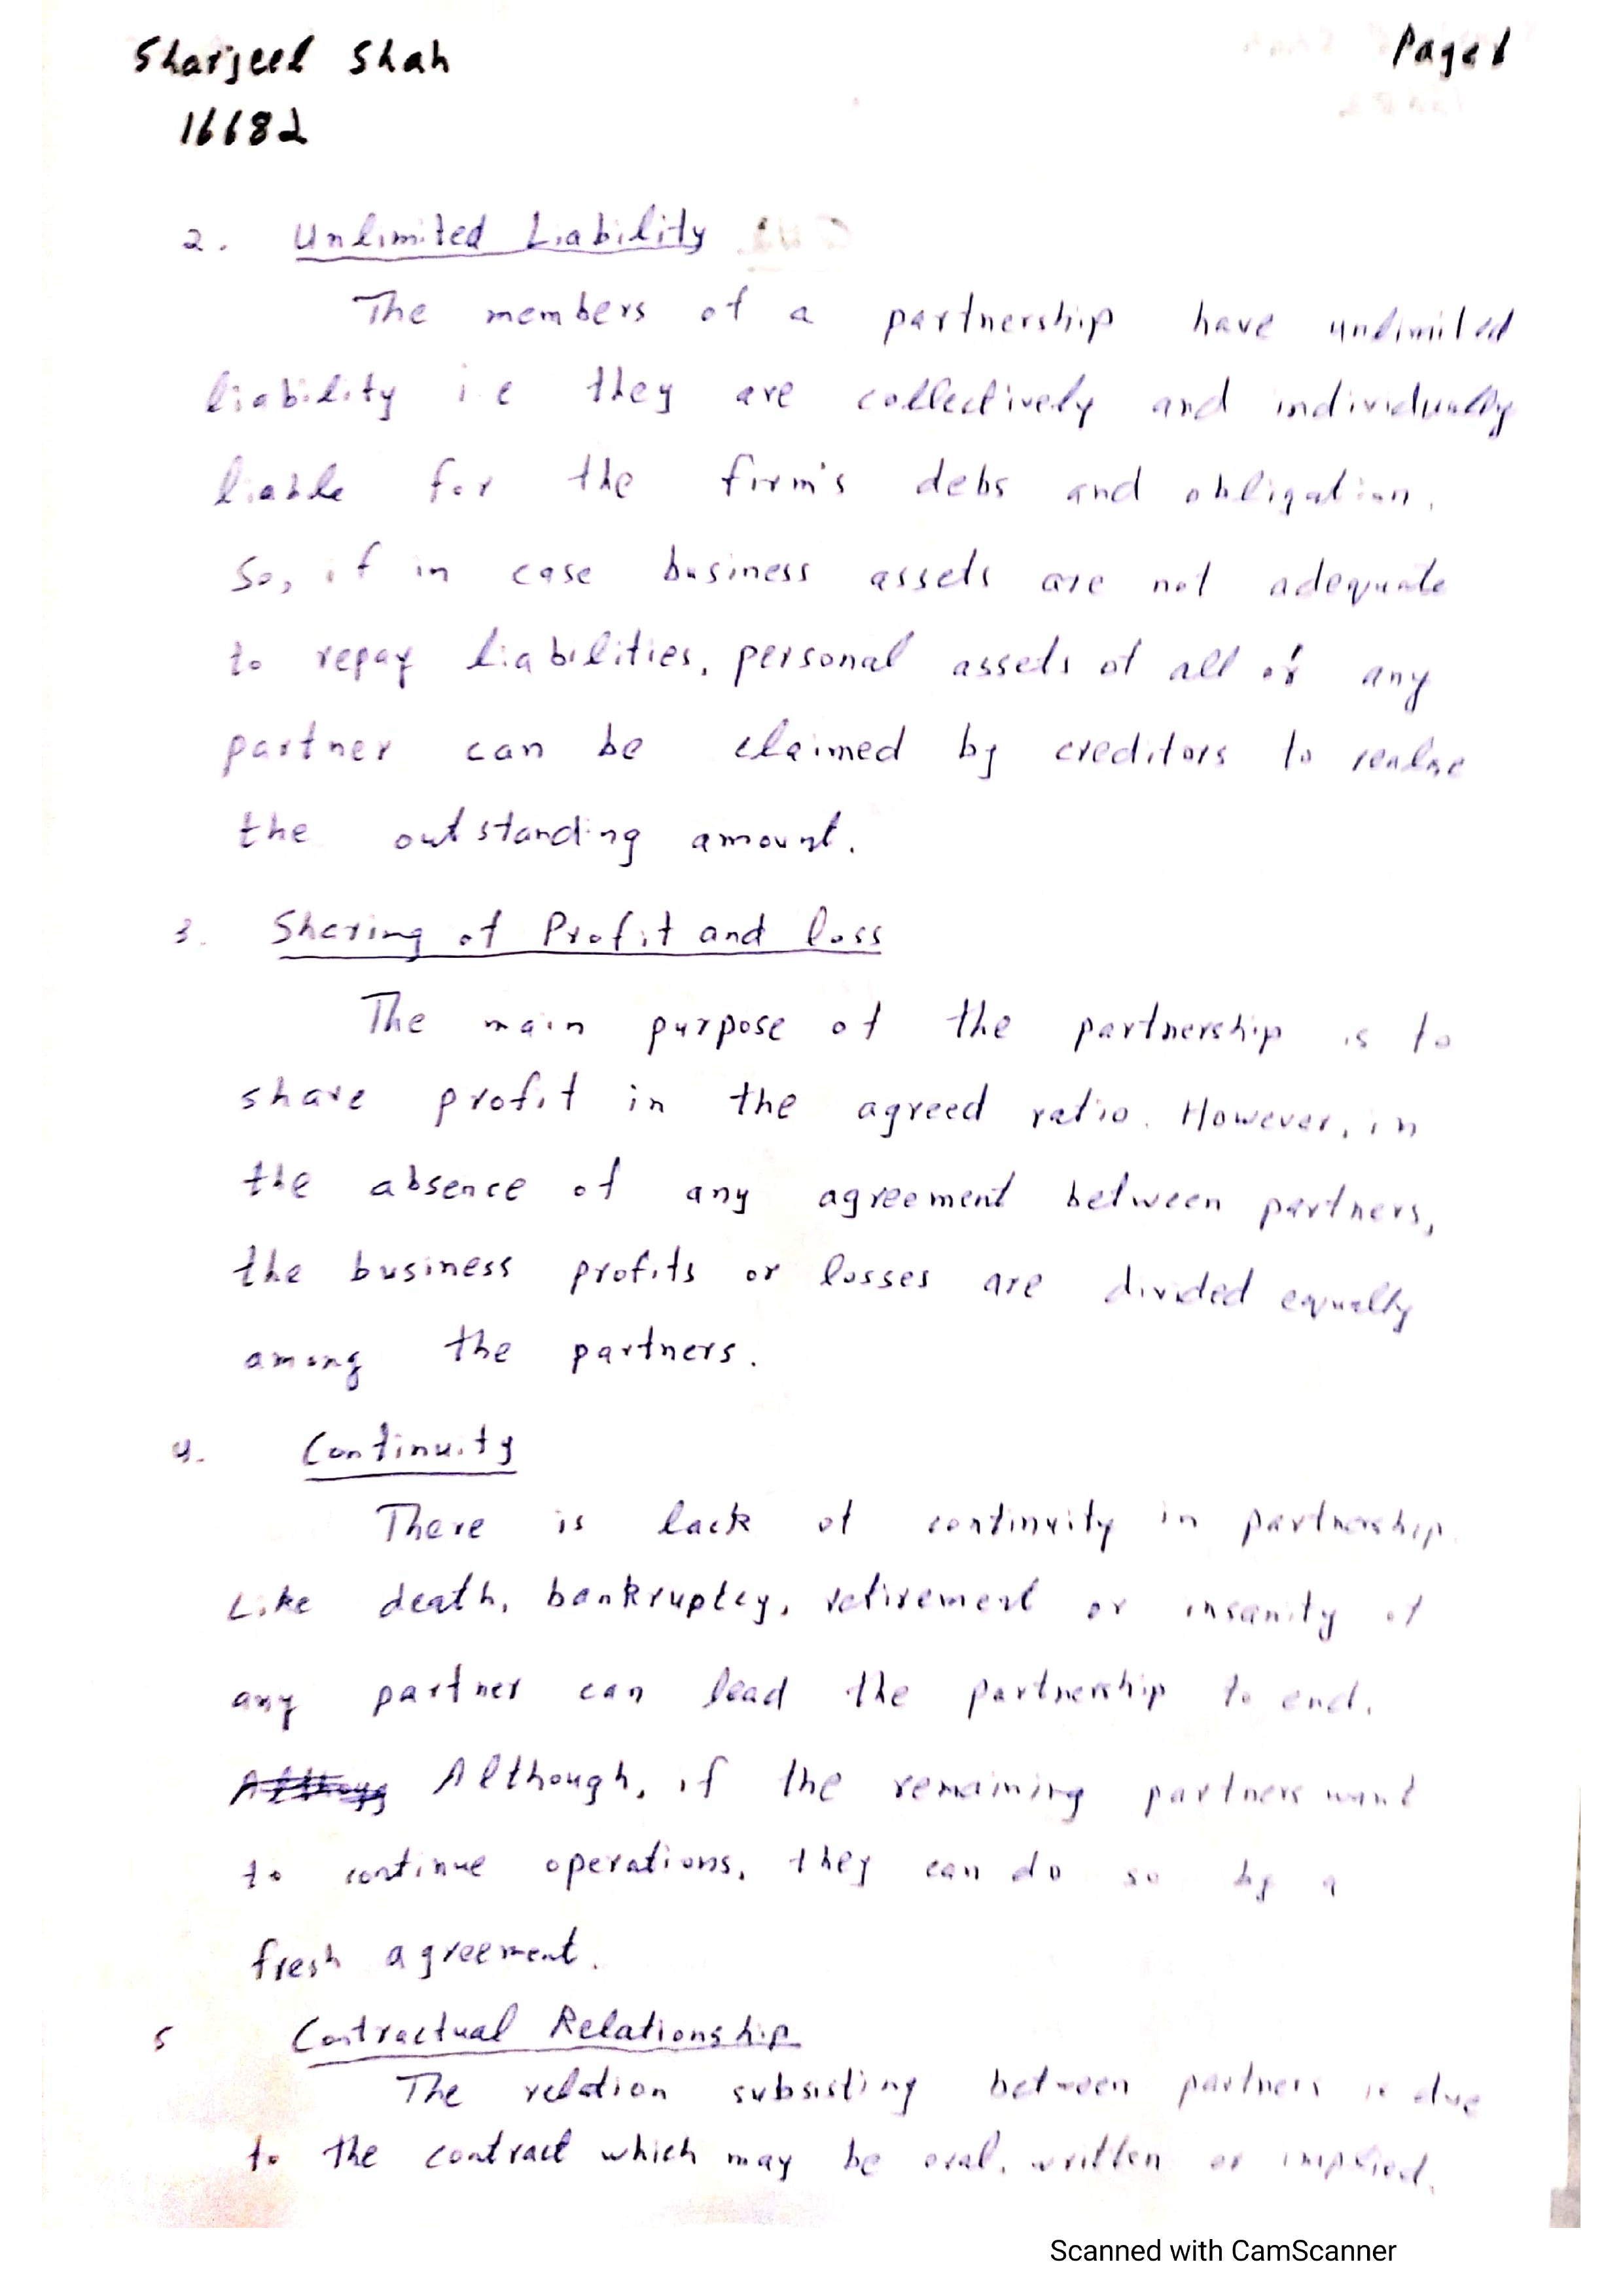 Sharjeel Shah
Page 1
16682
2. Unlimited Liability
The members of a partnership have unlimited
liability i.e they are collectively and individually
liable for the firm's debs and obligation.
So, if in case business assets are not adequate
to repay liabilities, personal assets of all or any
partner can be claimed by creditors to realse
the outstanding amount.
3. Sharing of Profit and loss
The main purpose of the partnership is to
share profit in the agreed ratio. However, in
the absence of any agreement between partners,
the business profits or losses are divided equally
among the partners.
4. Continuity
There is lack of continuity in partnership.
Like death, bankruptcy, retirement or insanity of
any partner can lead the partnership to end.
Although, if the remaining partners want
to continue operations, they can do so by a
fresh agreement.
5 Contractual Relationship
The relation subsisting between partners is due
to the contract which may be oral, written or implied.
Scanned with CamScanner